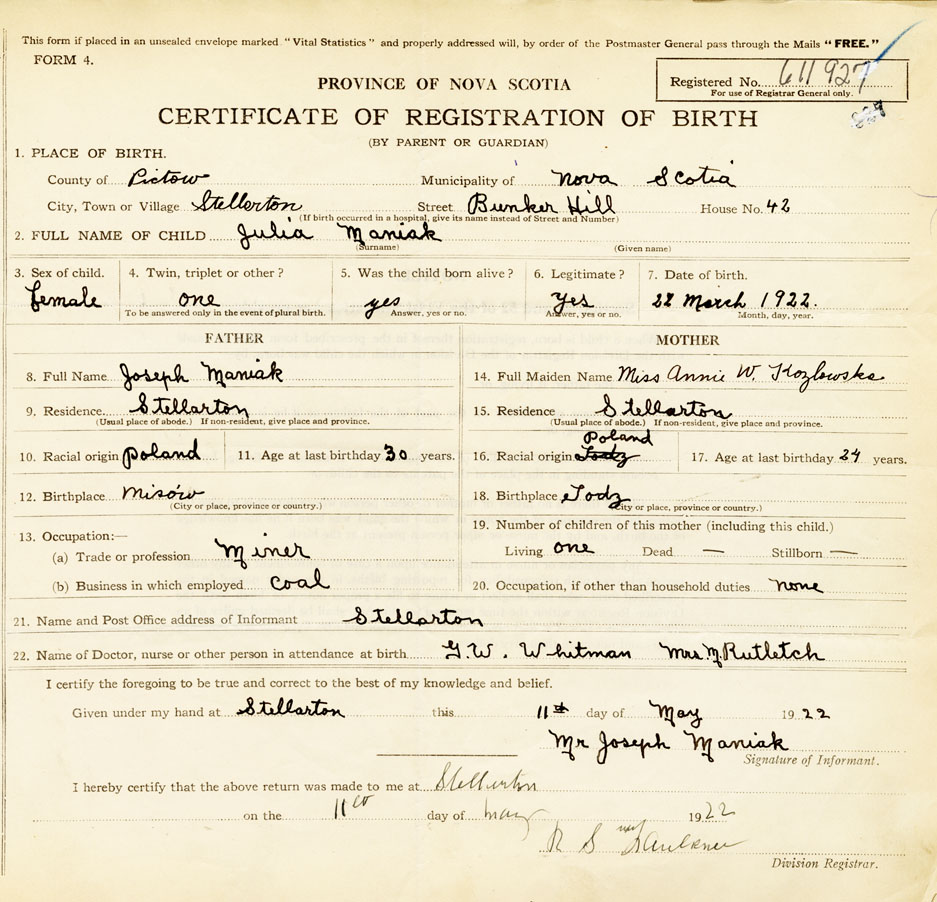 This form if placed in an unsealed envelope marked "Vital Statistics" and properly addressed will, by order of the Postmaster General pass through the Mails "FREE."
FORM 4.
Registered No. 611927
For use of Registrar General only.
PROVINCE OF NOVA SCOTIA
CERTIFICATE OF REGISTRATION OF BIRTH
(BY PARENT OR GUARDIAN)
1. PLACE OF BIRTH.
County of Pictow Municipality of Nova Scotia
City, Town or Village Stellerton Street Bunker Hill House No. 42
(If birth occurred in a hospital, give its name instead of Street and Number)
2. FULL NAME OF CHILD Julia Maniak
(Surname) (Given name)
3. Sex of child. 4. Twin, triplet or other? 5. Was the child born alive? 6. Legitimate? 7. Date of birth.
female one yes Yes 22 March 1922.
To be answered only in the event of plural birth. Answer, yes or no. Answer, yes or no. Month, day, year.
FATHER
8. Full Name Joseph Maniak
9. Residence Stellarton
(Usual place of abode.) If non-resident, give place and province.
10. Racial origin Poland 11. Age at last birthday 30 years.
12. Birthplace Misów
(City or place, province or country.)
13. Occupation:—
(a) Trade or profession Miner
(b) Business in which employed coal
MOTHER
14. Full Maiden Name Miss Annie W. Kozlowska
15. Residence Stellarton
(Usual place of abode.) If non-resident, give place and province.
Poland
16. Racial origin Lodz 17. Age at last birthday 24 years.
18. Birthplace Lodz
(City or place, province or country.)
19. Number of children of this mother (including this child.)
Living one Dead — Stillborn —
20. Occupation, if other than household duties none
21. Name and Post Office address of Informant Stellarton
22. Name of Doctor, nurse or other person in attendance at birth G.W. Whitman Mrs. M. Rutletch
I certify the foregoing to be true and correct to the best of my knowledge and belief.
Given under my hand at Stellarton this 11th day of May 1922
Mr Joseph Maniak
Signature of Informant.
I hereby certify that the above return was made to me at Stellerton
on the 11 day of may 1922
R S Faulkner
Division Registrar.